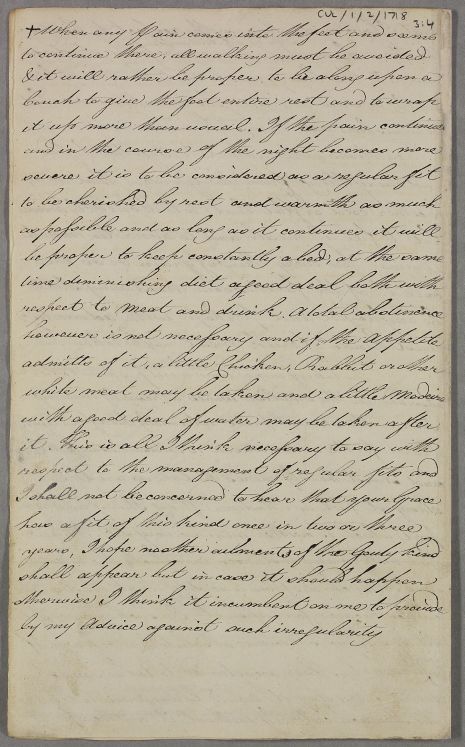 CUL/1/2/1718
3:4
+ When any Pain comes into the feet and seems
to continue there, all walking must be avoided
& it will rather be proper to lie along upon a
Couch to give the foot entire rest and to wrap
it up more than usual. If the pain continues
and in the course of the night becomes more
severe it is to be considered as a regular fit
to be cherished by rest and warmth as much
as possible and as long as it continues it will
be proper to keep constantly a bed, at the same
time diminishing diet a good deal both with
respect to meat and drink. A total abstinence
however is not necessary and if the appetite
admitts of it, a little Chicken, Rabbit or other
white meat may be taken and a little Madeira
with a good deal of water may be taken after
it. This is all I think necessary to say with
respect to the management of regular fits and
I shall not be concerned to hear that your Grace
has a fit of this kind once in two or three
years, I hope no other ailments of the Gouty kind
shall appear but in case it should happen
otherwise I think it incumbent on me to provide
by my Advice against such irregularity